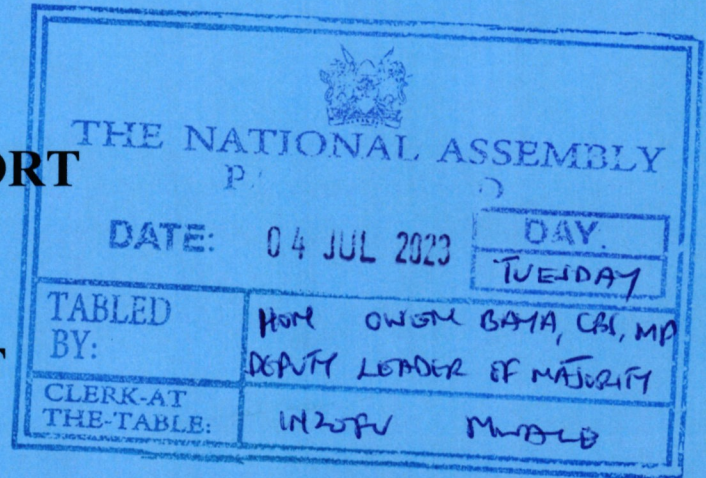 THE NATIONAL ASSEMBLY
P
ORT
DATE: 04 JUL 2023 DAY.
TUESDAY
TABLED BY: HON OWEN BAYA, CBS, MP
DEPUTY LEADER OF MAJORITY
T
CLERK-AT THE-TABLE: INZOFU MWALE